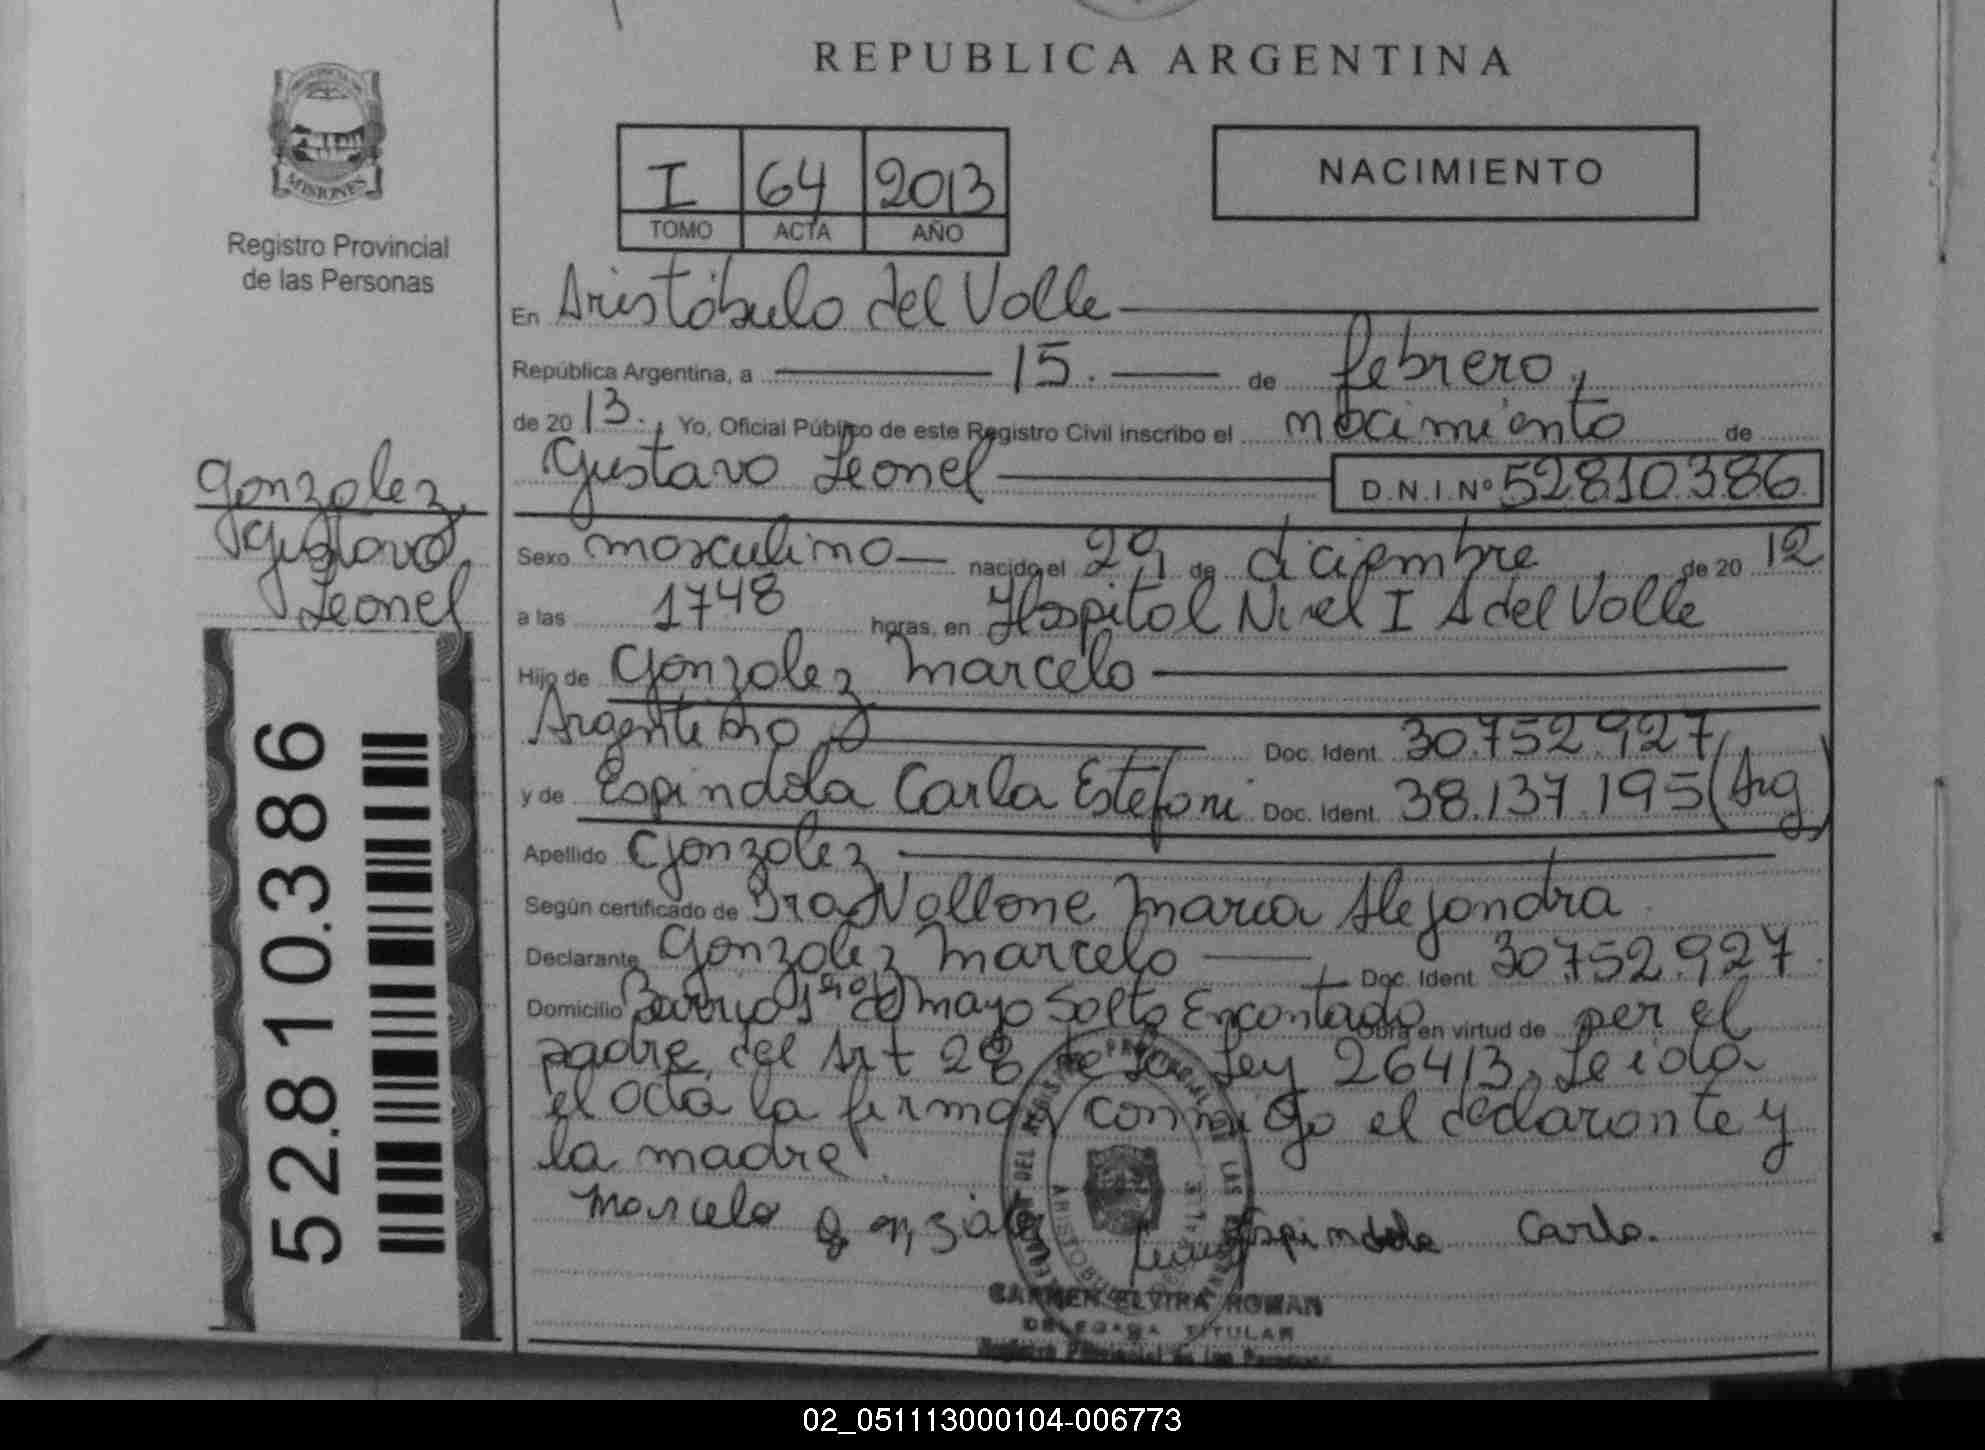 REPUBLICA ARGENTINA
PROVINCIA DE
MISIONES
Registro Provincial
de las Personas
I 64 2013
TOMO ACTA AÑO
NACIMIENTO
En Aristóbulo del Valle
República Argentina, a 15. de febrero,
de 2013., Yo, Oficial Público de este Registro Civil inscribo el nacimiento de
Gustavo Leonel D.N.I.Nº 52810.386
Gonzalez
Gustavo
Leonel
Sexo masculino nacido el 29 de diciembre de 2012
a las 1748 horas, en Hospital Nivel I A del Valle
Hijo de Gonzalez Marcelo
Argentino Doc. Ident. 30.752.927
y de Espindola Carla Estefani Doc. Ident. 38.137.195 (Arg)
Apellido Gonzalez
Según certificado de Dra Vallone Maria Alejandra
Declarante Gonzalez Marcelo Doc. Ident. 30.752.927.
Domicilio Barrio 1ro de mayo Salto Encantado Obra en virtud de per el
padre, del Art 28 de la Ley 26413, Leida
el acta la firman conmigo el declarante y
la madre.
Marcelo gonzalez Espindola Carla.
CARMEN ELVIRA ROMAN
DELEGADA TITULAR
Registro Provincial de las Personas
52.810.386
02_051113000104-006773